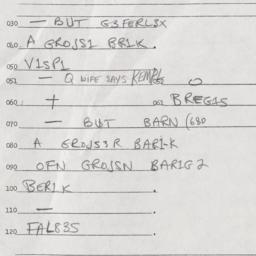 030 — BUT G3FERLSX
040 A GROJSS1 BR1K.
050 V1SP1
051 — Q WIFE SAYS
060 + 061 BREG1S
070 — BUT BARN (680
080 A GROJS3R BAR1-K
090 OFN GROJSN BAR1G2
100 BER1K .
110 — .
120 FAL835 .